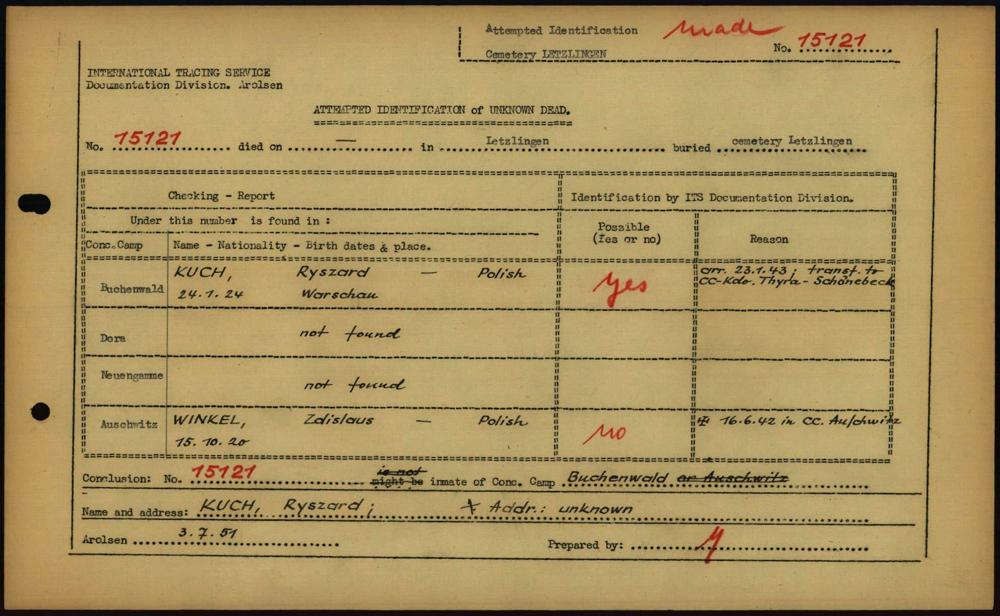 Attempted Identification made No. 15121
Cemetery LETZLINGEN
INTERNATIONAL TRACING SERVICE
Documentation Division. Arolsen
ATTEMPTED IDENTIFICATION of UNKNOWN DEAD.
No. 15121 died on — in Letzlingen buried cemetery Letzlingen
Checking - Report
Identification by ITS Documentation Division.
Under this number is found in :
Possible
(Yes or no)
Reason
Conc.Camp
Name - Nationality - Birth dates & place.
Buchenwald
KUCH, Ryszard — Polish
24.1.24 Warschau
yes
arr. 23.1.43, transf. to
CC-Kdo. Thyra-Schönebeck
Dora
not found
Neuengamme
not found
Auschwitz
WINKEL, Zdislaus — Polish
15.10.20
no
16.6.42 in CC. Auschwitz
Conclusion: No. 15121 is not
might be inmate of Conc. Camp Buchenwald or Auschwitz
Name and address: KUCH, Ryszard; Addr.: unknown
Arolsen 3.7.51
Prepared by: